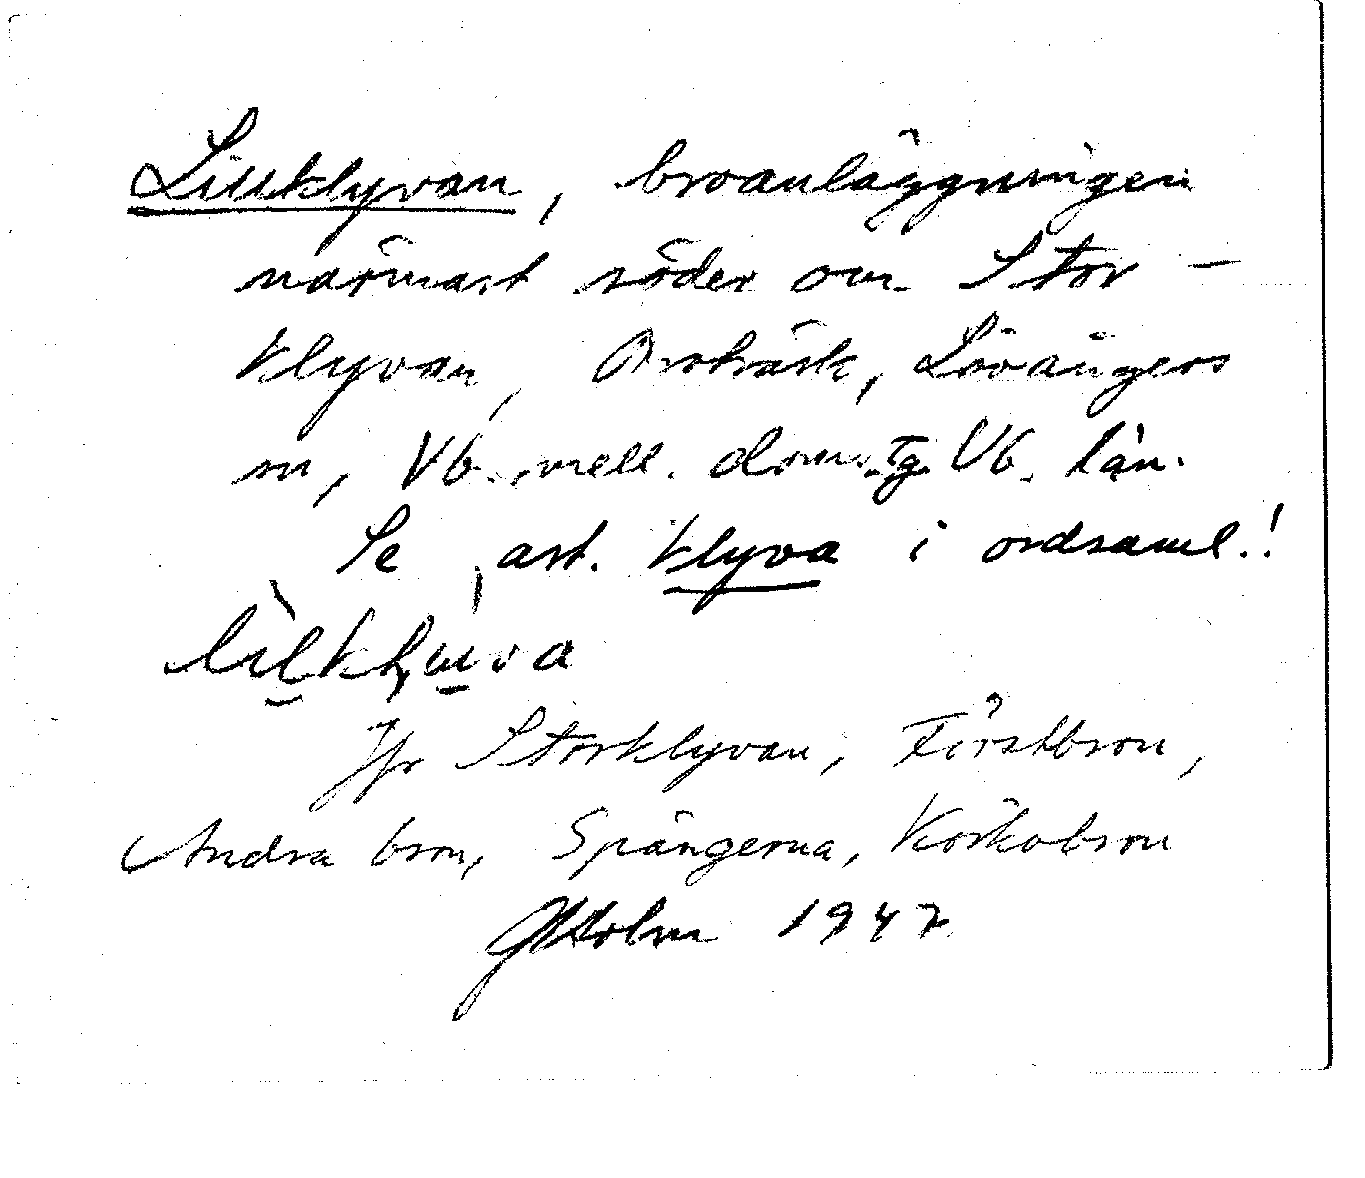 Lillklyvan, broanläggningen
närmast söder om Stor-
klyvan, Brobäsk, Lövångers
sn, Vb. mell. doms.g. Vb. län.
Se art. klyva i ordsaml.!
Jfr Storklyvan, Förstbron,
Andra bron, Spångerna, Korkobron
Holm 1947